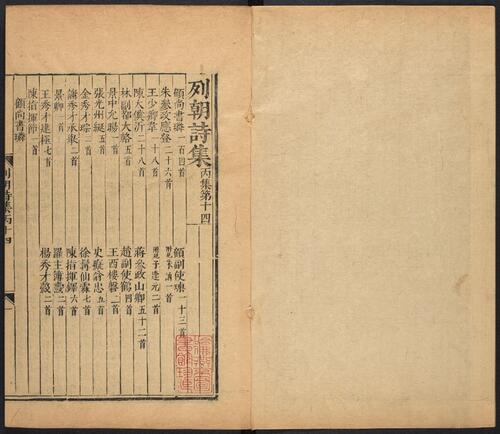 列朝詩集丙集第十四
顧尚書璘一百四首
顧副使瑮一十三首
朱叅政應登二十六首
王少卿韋一十八首
附見子逢元二首
陳太僕沂二十八首
蔣叅政山卿五十二首
林副都大輅五首
趙副使鶴四首
景中允暘一首
王西樓磐二首
張光州綖五首
史癡翁忠五首
金秀才琮一首
徐霖仙七首
謝秀才承舉二首
陳指揮鐸六首
景卿一首
羅主簿
王秀才建極七首
楊秀才穀二首
陳指揮
顧尚書璘
列朝詩集丙十四